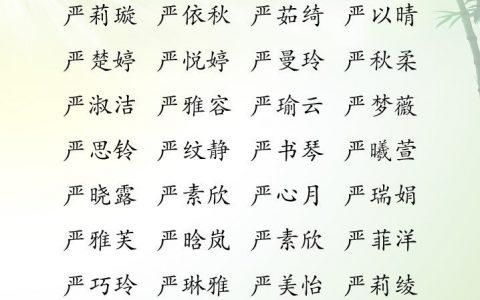 严莉璇 严依秋 严茹绮 严以晴
严楚婷 严悦婷 严曼玲 严秋柔
严淑洁 严雅容 严瑜云 严梦薇
严思铃 严纹静 严书琴 严曦萱
严晓露 严素欣 严心月 严瑞娟
严雅芙 严晗岚 严素欣 严菲洋
严巧玲 严琳雅 严美怡 严莉绫